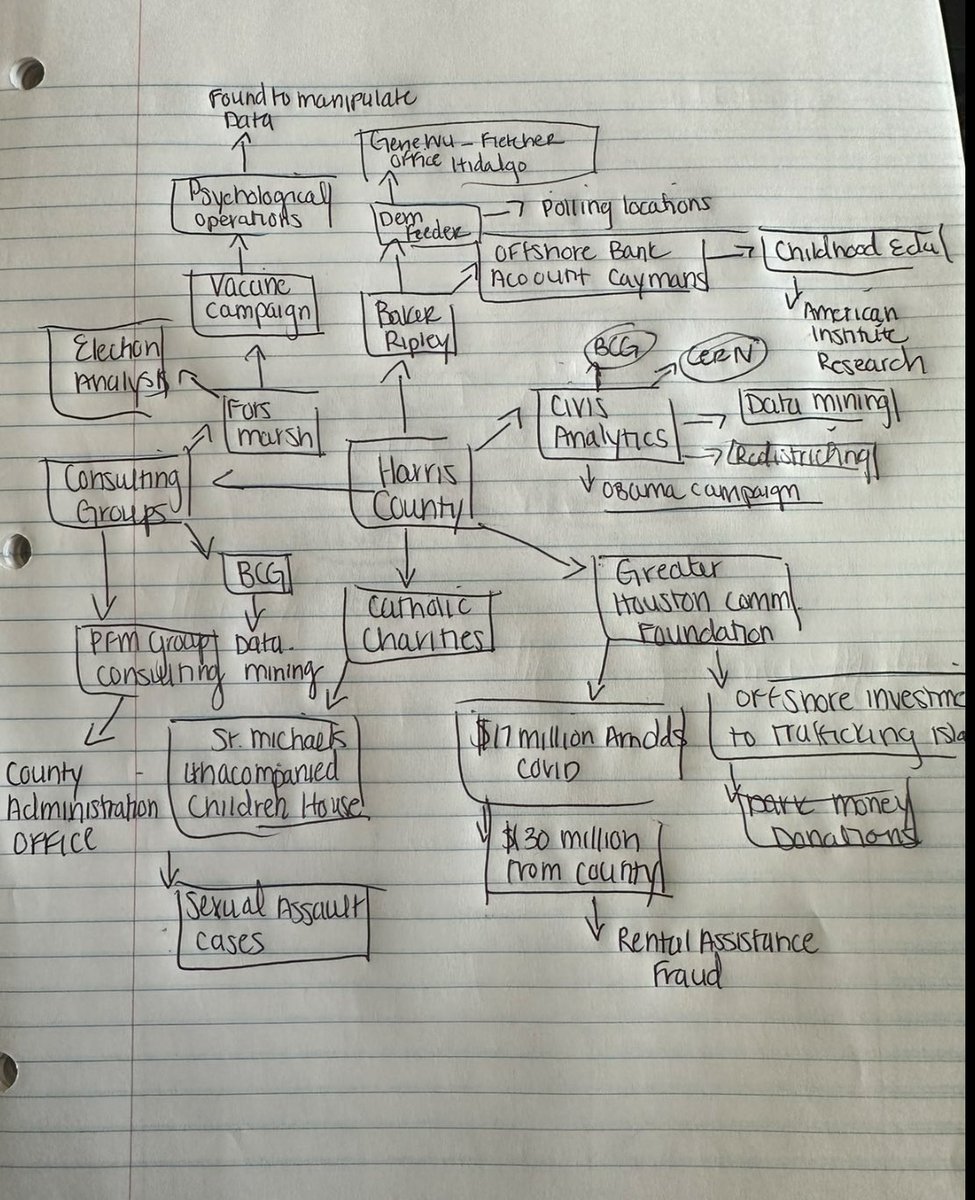 Found to manipulate
Data
Psychological
operations
Vaccine
campaign
Election
Analysis
Fors
marsh
Gene Wu - Fletcher
office Hidalgo
Dem
Feeder
Polling locations
Offshore Bank
Acoount Caymans
Childhood Edu
American
Institute
Research
Baker
Ripley
BCG
CERN
Civis
Analytics
Data mining
Redistricting
Obama campaign
Harris
County
Consulting
Groups
BCG
Data
mining
PFM Group
consulting
County
Administration
Office
Catholic
Charities
St. Michaels
Unacompanied
Children House
Sexual Assault
cases
Greater
Houston Comm.
Foundation
$17 million Arnolds
Covid
$130 million
from county
Rental Assistance
Fraud
Offshore Investme
to Trafficking Isla
park money
Donations